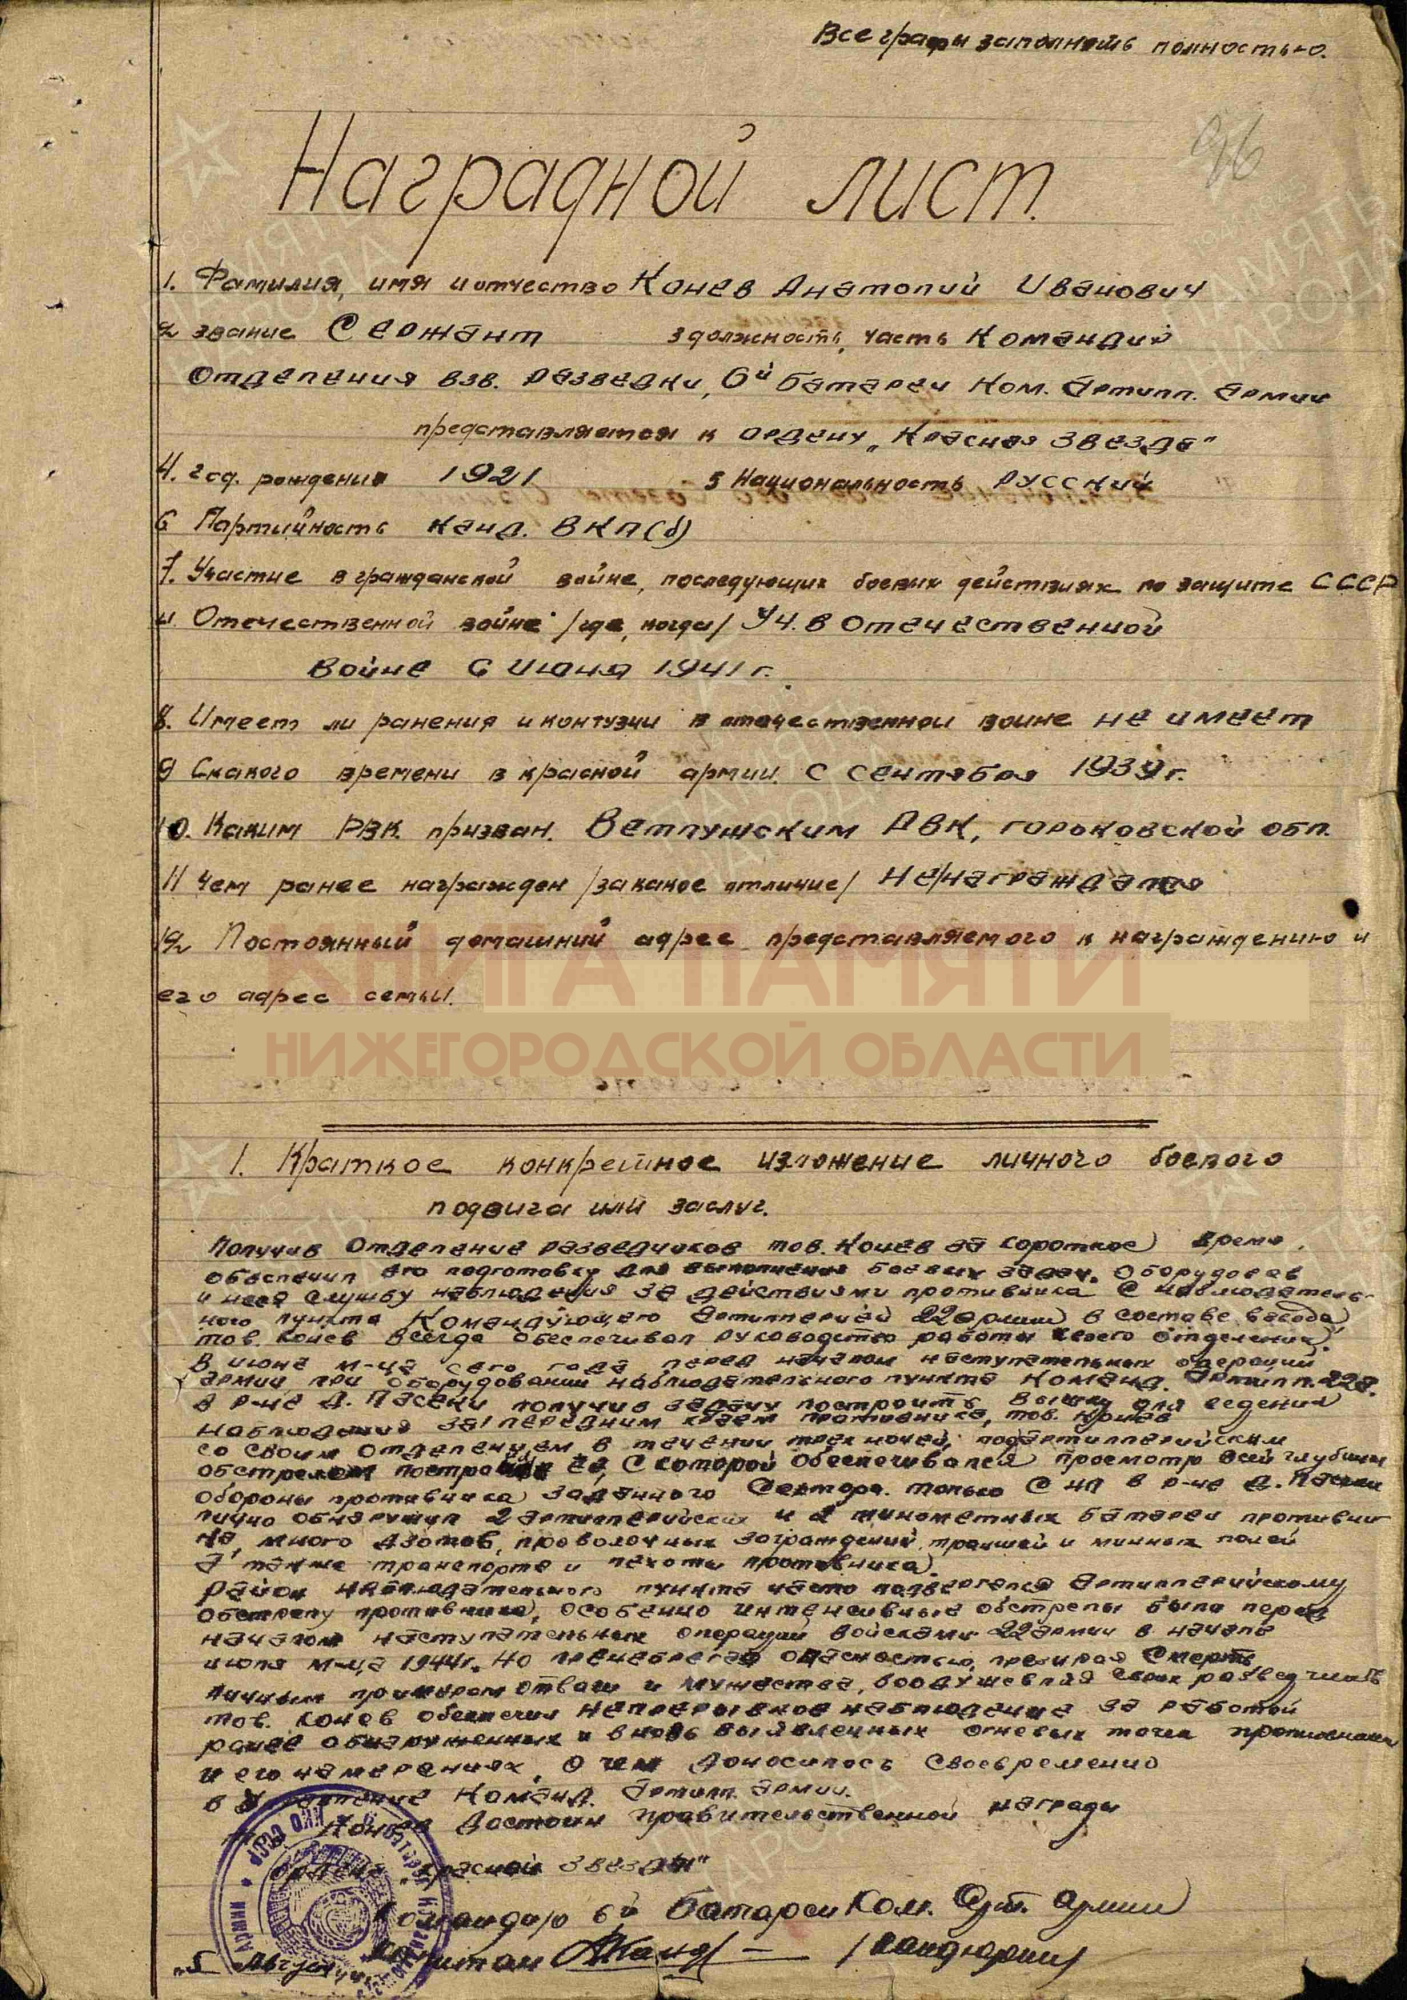 Все графы заполнять полностью.
96
Наградной лист.
1. Фамилия, имя и отчество Конев Анатолий Иванович
2 звание Сержант 3 должность, часть Командир
Отделения взв. разведки, 6й батареи Ком. Артилл. Армии
представляется к ордену „Красная Звезда"
4. год. рождения 1921 5 Национальность русский
6 Партийность канд. ВКП(б)
7. Участие в гражданской войне, последующих боевых действиях по защите СССР
и Отечественной войне /где, когда/ Уч. в Отечественной
войне с июня 1941 г.
8. Имеет ли ранения и контузии в отечественной войне не имеет
9 С какого времени в красной армии с сентября 1939 г.
10. Каким РВК призван. Ветлужским РВК, горьковской обл.
11 Чем ранее награжден /за какое отличие/ не награждался
12 Постоянный домашний адрес представляемого к награждению и
его адрес семьи.
КНИГА ПАМЯТИ
НИЖЕГОРОДСКОЙ ОБЛАСТИ
1. Краткое конкретное изложение личного боевого
подвига или заслуг.
Получив Отделение разведчиков тов. Конев за короткое время
обеспечил его подготовку для выполнения боевых задач. Оборудовав
и неся службу наблюдения за действиями противника с наблюдатель-
ного пункта Командующего Артиллерией 22 армии в составе взвода
тов. Конев всегда обеспечивал руководство работы своего отделения.
В июне м-ца сего года перед началом наступательных операций
армии при оборудовании наблюдательного пункта Команд. Артилл. 22 А.
в р-не д. Пасеки получив задачу построить вышку для ведения
наблюдения за передним краем противника, тов. Конев
со своим отделением в течении трех ночей под артиллерийским
обстрелом построил ее, с которой обеспечивался просмотр всей глубины
обороны противника заданного сектора. только с нп в р-не д. Пасеки
лично обнаружил 2 артиллерийских и 2 минометных батареи противни
ка, много дзотов, проволочных заграждений, траншей и минных полей
а также транспорта и пехоты противника.
Район наблюдательного пункта часто подвергался артиллерийскому
обстрелу противника, особенно интенсивные обстрелы были перед
началом наступательных операций войсками 22 армии в начале
июля м-ца 1944 г. Но пренебрегая опасностью, презирая смерть
личным примером отваги и мужества, воодушевляя своих разведчиков
тов. Конев обеспечил непрерывное наблюдение за работой
ранее обнаруженных и вновь выявленных огневых точек противника
и его намерениях, о чем доносилось своевременно
в Управление Команд. Артилл. Армии.
Конев Достоин правительственной награды
ордена „Красной Звезды"
Командир 6й батареи Ком. Арт. Армии
капитан /Кандюрин/
„5" Августа